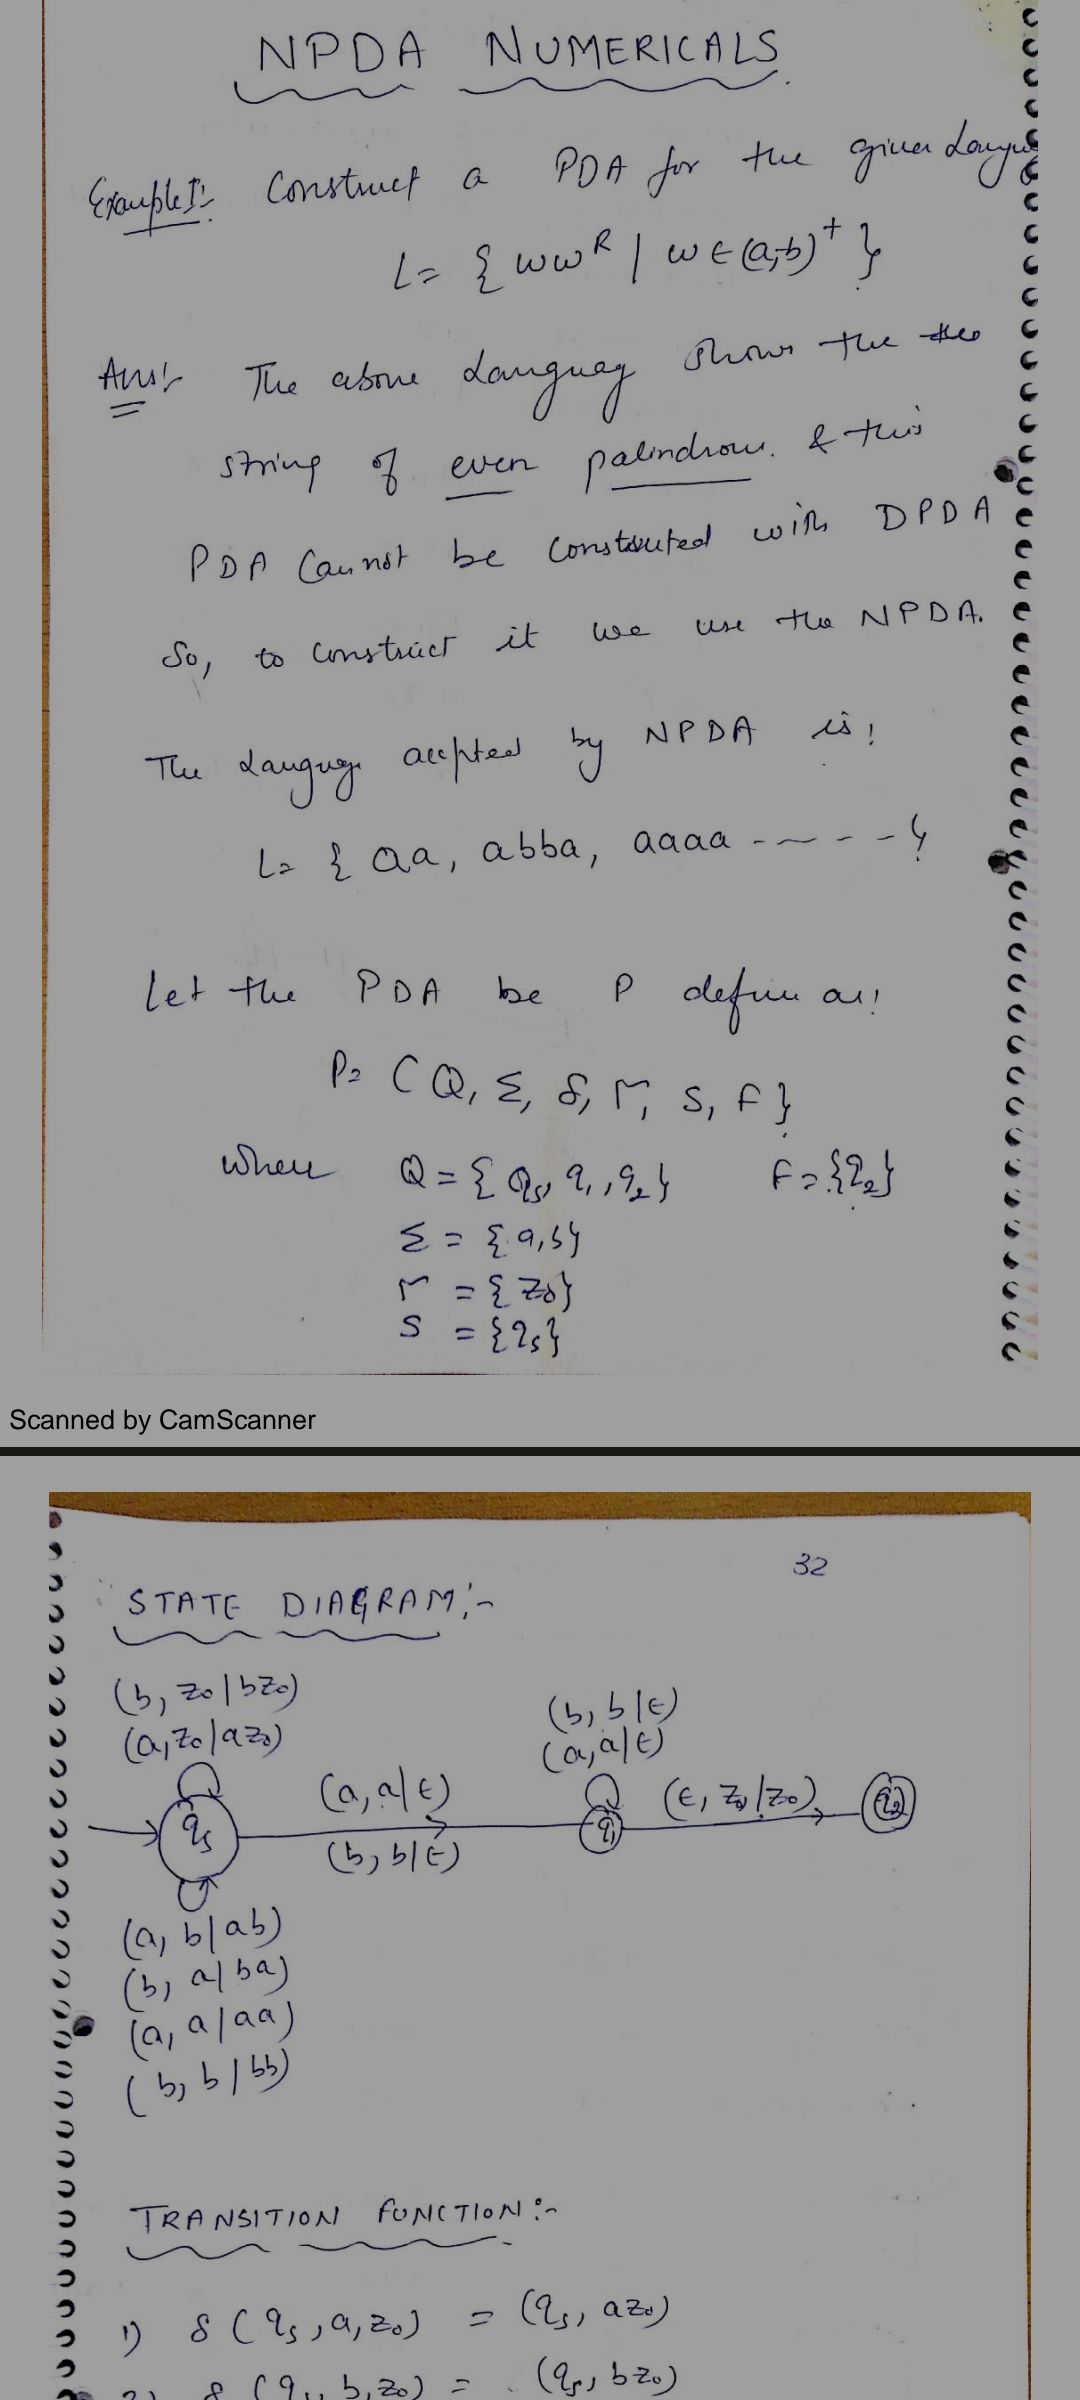 NPDA NUMERICALS
Example 1:- Construct a PDA for the given
L = { ww^R | w ∈ (a,b)^+ }
Ans:- The above Languag shows the
string of even palindrom. & this
PDA Cannot be constructed with DPDA
So, to construct it we use the NPDA.
The Languag accpted by NPDA is:
L = { aa, abba, aaaa ----- }
Let the PDA be P defin as:
P = ( Q, Σ, δ, Γ, S, F }
where Q = { qs, q1, q2 } F = {q2}
Σ = {a,b}
Γ = {z0}
S = {qs}
Scanned by CamScanner
32
STATE DIAGRAM:-
(b, z0 | bz0)
(a, z0 | az0)
(b, b | ε)
(a, a | ε)
(a, a | ε)
(ε, z0 | z0)
qs
q1
q2
(b, b | ε)
(a, b | ab)
(b, a | ba)
(a, a | aa)
(b, b | bb)
TRANSITION FUNCTION:-
1) δ (qs, a, z0) = (qs, az0)
2) δ (qs, b, z0) = (qs, bz0)